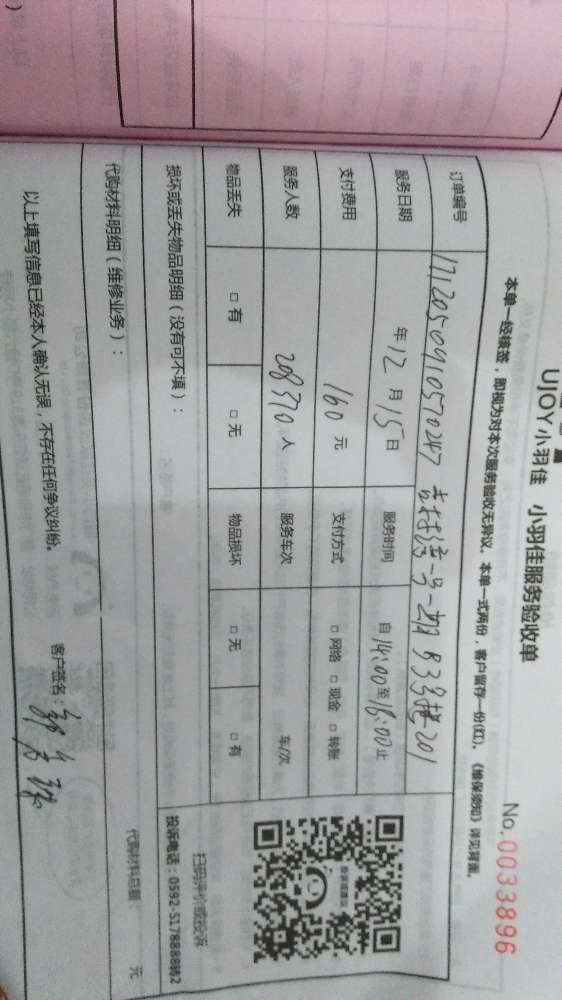 UJOY小羽佳 小羽佳服务验收单
No. 0033896
本单一经核签，即视为对本次服务验收无异议。本单一式两份，客户留存一份(红)。《维保须知》详见背面。
订单编号 1712050910570247 一号一期83号楼201
服务日期 年12月15日 服务时间 自14:00至16:00止
支付费用 160元 支付方式 □网络 □现金 □转账
服务人数 208370人 服务车次 车/次
物品丢失 □有 □无 物品损坏 □无 □有
扫码评价或投诉
投诉电话：0592-5178888转2
损坏或丢失物品明细（没有可不填）：
代购材料明细（维修业务）：
代购材料总额： 元
以上填写信息已经本人确认无误，不存在任何争议纠纷。
客户签名：